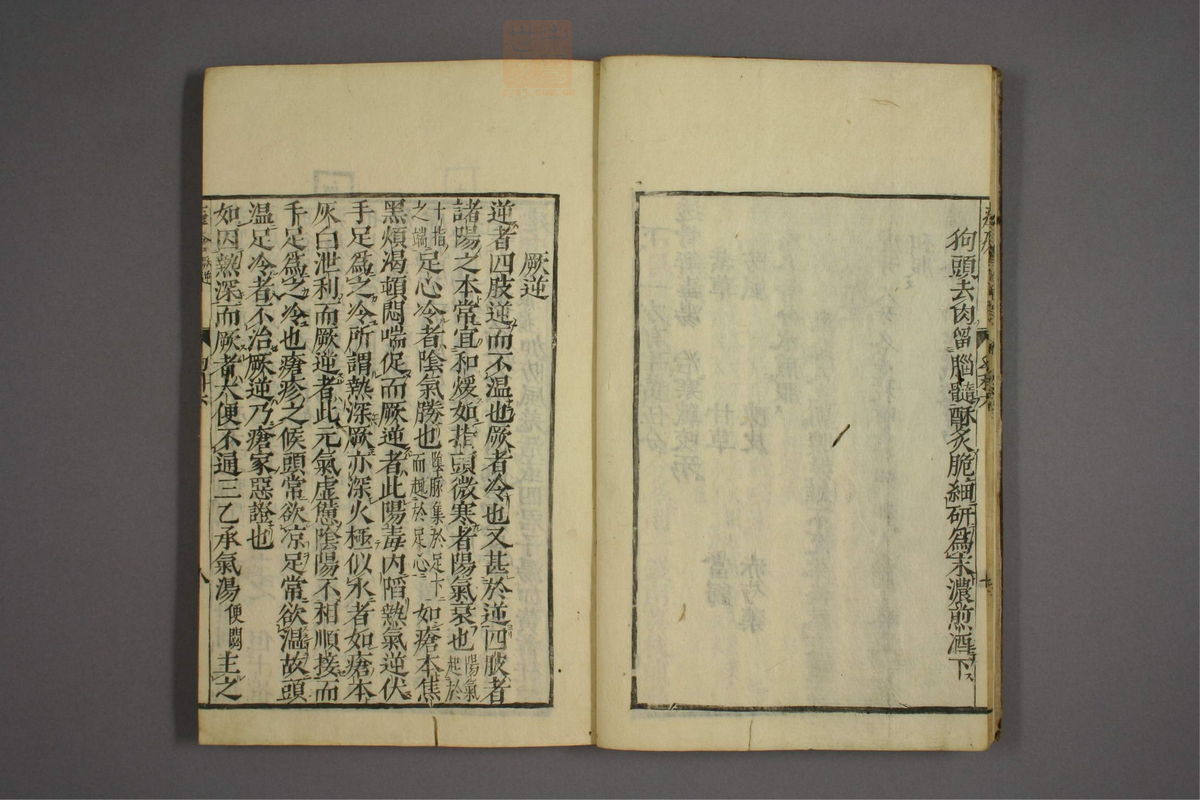 狗頭去肉留腦髓酥炙脆細研爲末濃煎酒下
厥逆
逆者四肢逆而不温也厥者冷也又甚於逆四肢者
諸陽之本常宜和煖如指頭微寒者陽氣衰也陽氣起於
十指之端足心冷者陰氣勝也陰脉集於足下而起於足心如瘡本焦
黑煩渴頓悶喘促而厥逆者此陽毒内陷熱氣逆伏
手足爲之冷所謂熱深厥亦深火極似水者如瘡本
灰白泄利而厥逆者此元氣虚憊陰陽不相順接而
手足爲之冷也瘡疹之候頭常欲凉足常欲温故頭
温足冷者不治厥逆乃瘡家惡證也
如因熱深而厥者大便不通三乙承氣湯便閟主之